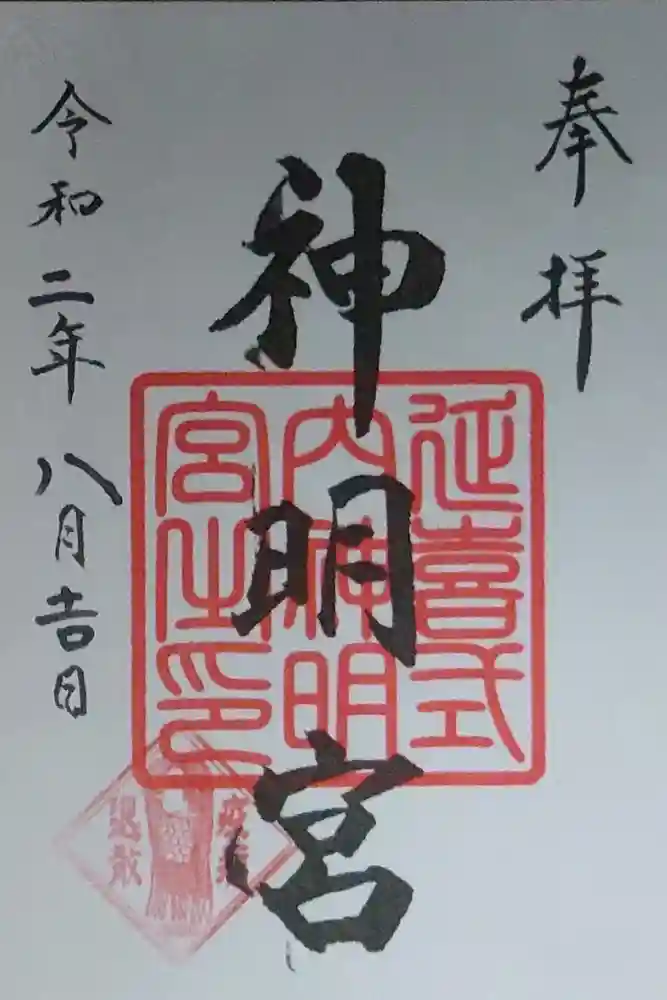 奉拝
神明宮
延喜式
内神明
宮之印
令和二年八月吉日
疫病
退散